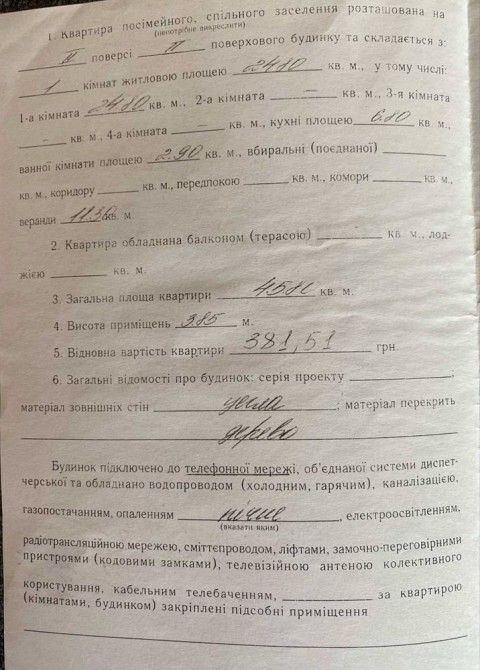 1. Квартира посімейного, спільного заселення розташована на
(непотрібне викреслити)
II поверсі II поверхового будинку та складається з:
1 кімнат житловою площею 24.80 кв. м., у тому числі:
1-а кімната 24.80 кв. м., 2-а кімната — кв. м., 3-я кімната
— кв. м., 4-а кімната — кв. м., кухні площею 6.80 кв. м.,
ванної кімнати площею 2.90 кв. м., вбиральні (поєднаної)
кв. м., коридору кв. м., передпокою кв. м., комори кв. м.,
веранди 11.30 кв. м.
2. Квартира обладнана балконом (терасою) — кв. м., лод-
жією кв. м.
3. Загальна площа квартири 45.80 кв. м.
4. Висота приміщень 3.85 м.
5. Відновна вартість квартири 381,51 грн.
6. Загальні відомості про будинок: серія проекту ,
матеріал зовнішніх стін цегла , матеріал перекрить
дерево
Будинок підключено до телефонної мережі, об'єднаної системи диспет-
черської та обладнано водопроводом (холодним, гарячим), каналізацією,
газопостачанням, опаленням пічне , електроосвітленням,
(вказати яким)
радіотрансляційною мережею, сміттєпроводом, ліфтами, замочно-переговірними
пристроями (кодовими замками), телевізійною антеною колективного
користування, кабельним телебаченням, за квартирою
(кімнатами, будинком) закріплені підсобні приміщення